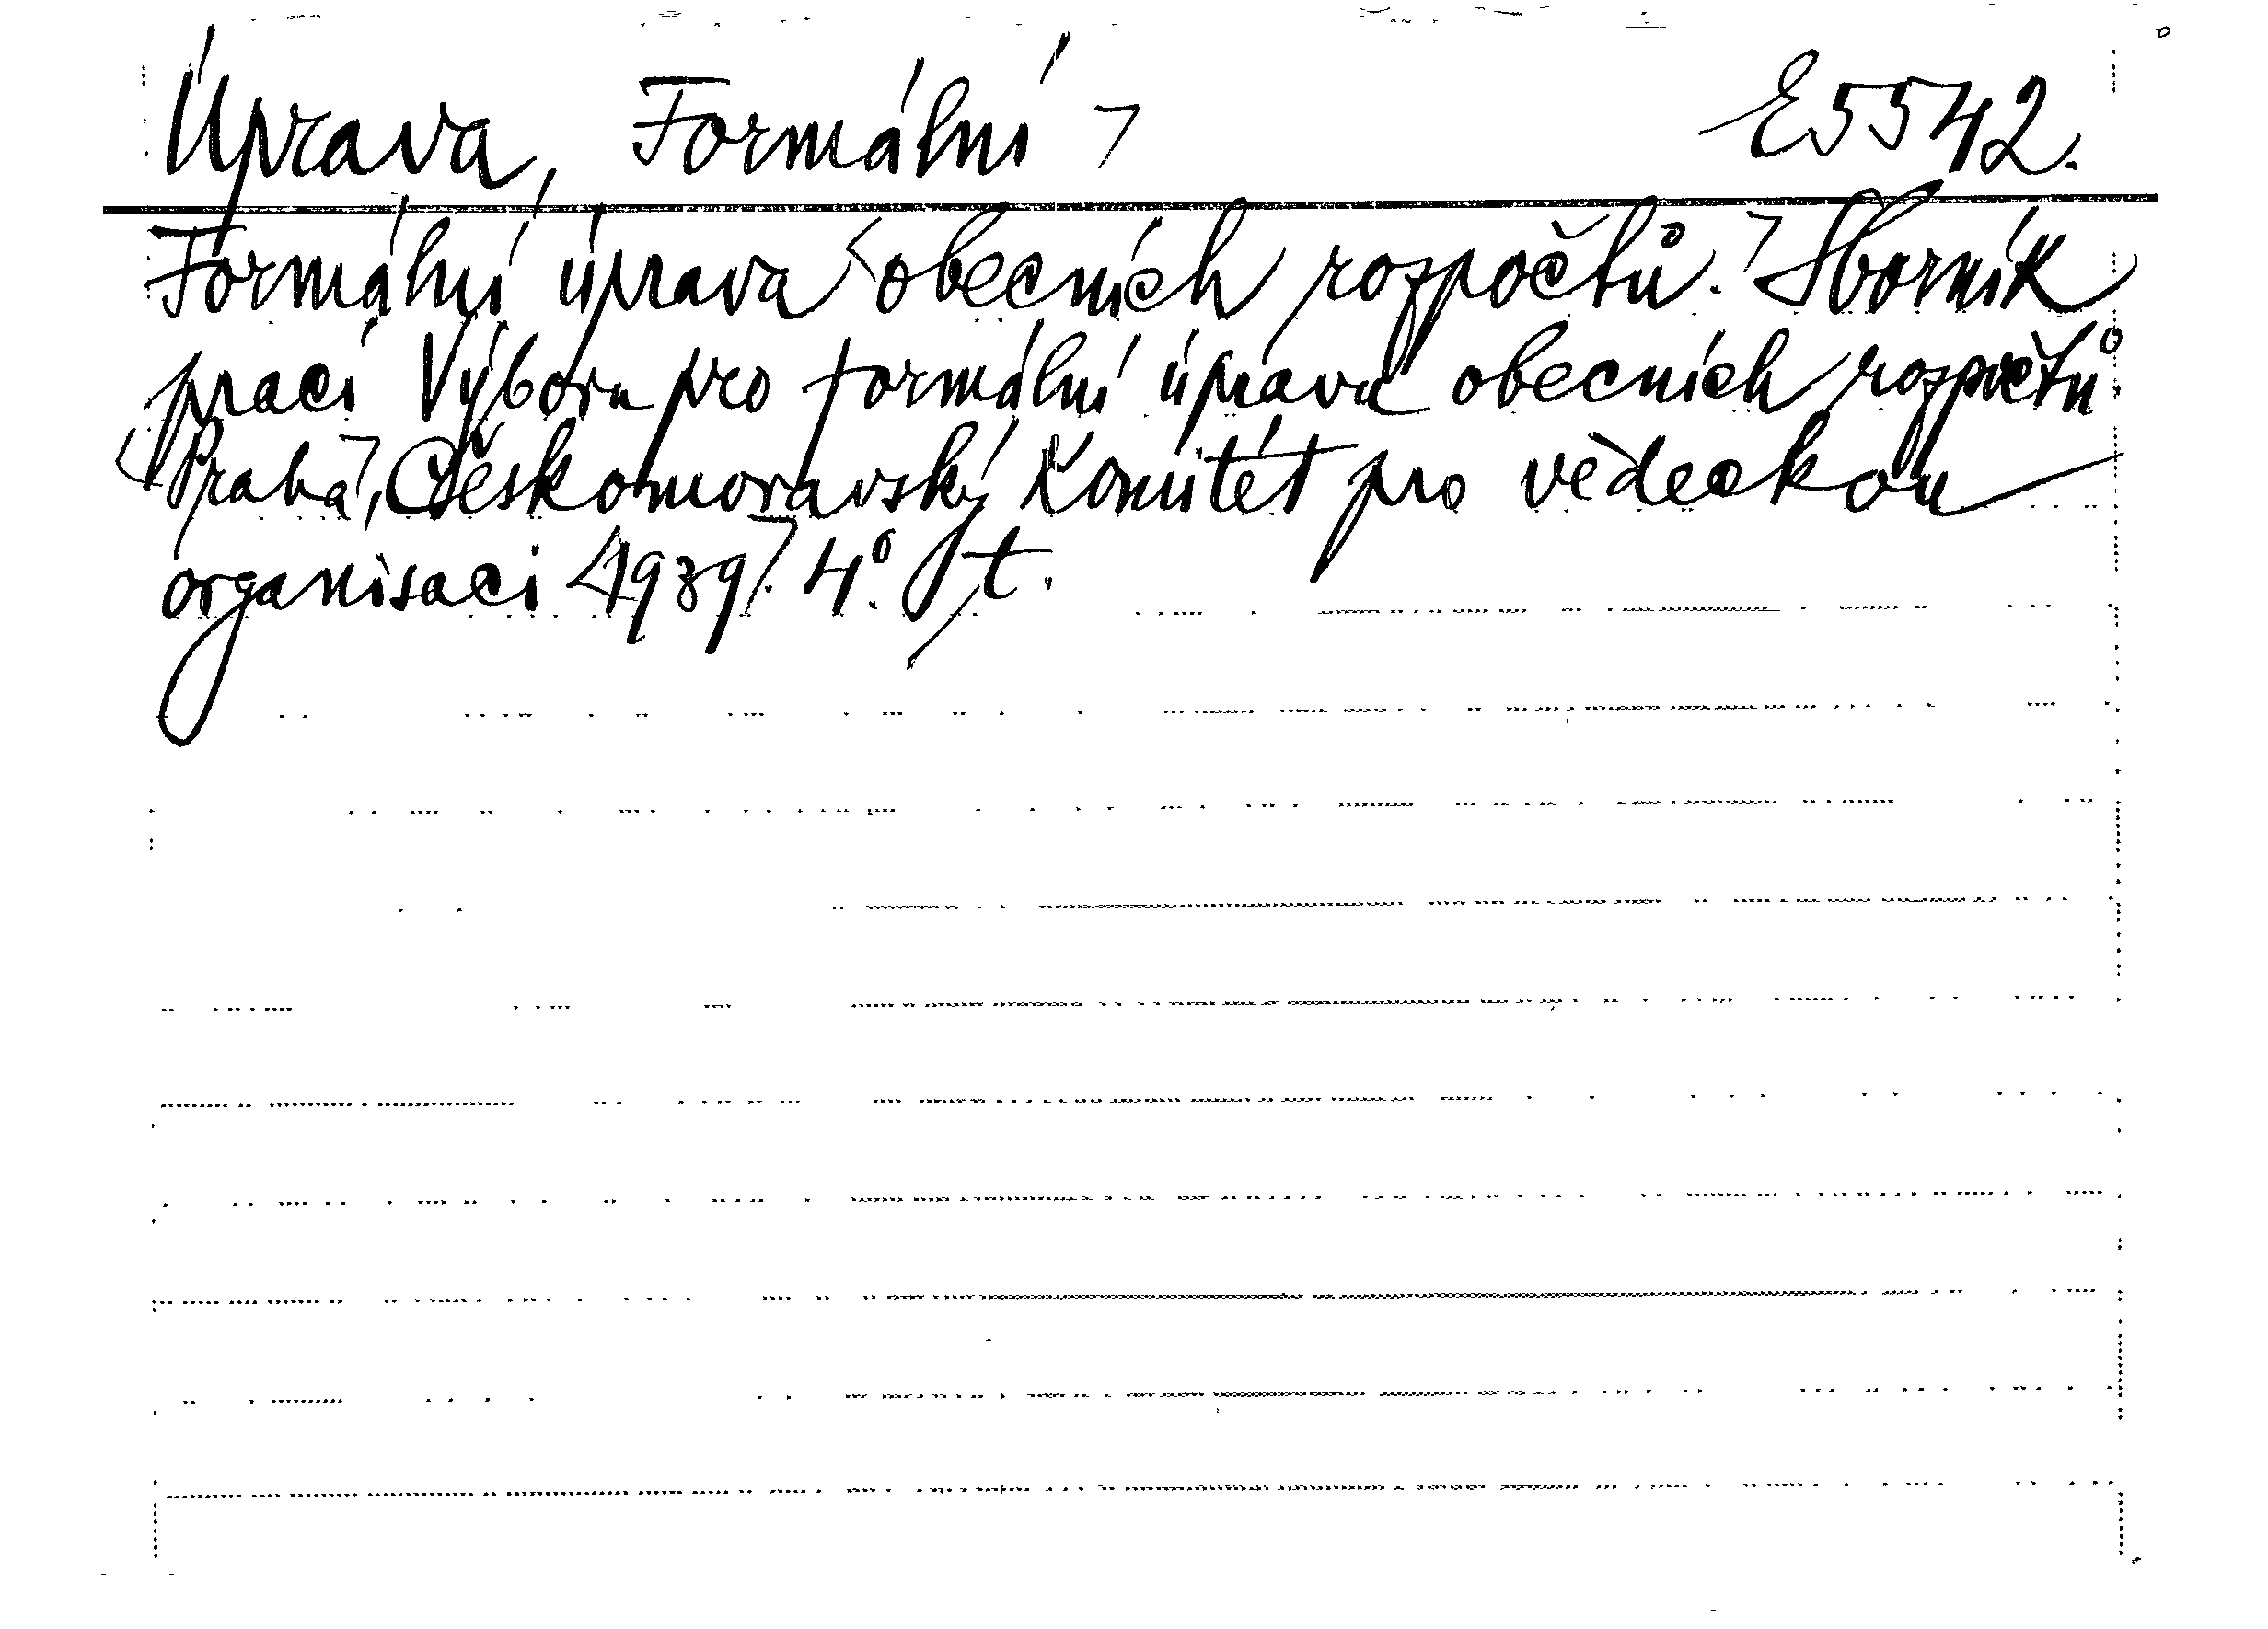 Úprava, Formální ⌝ E5542.
Formální úprava <obecních rozpočtů.⌝ Sborník
prací Výboru pro formální úpravu obecních rozpočtů
<Praha⌝, Českomoravský Komitét pro vědeckou
organisaci <1939⌝. 4°. Jt.